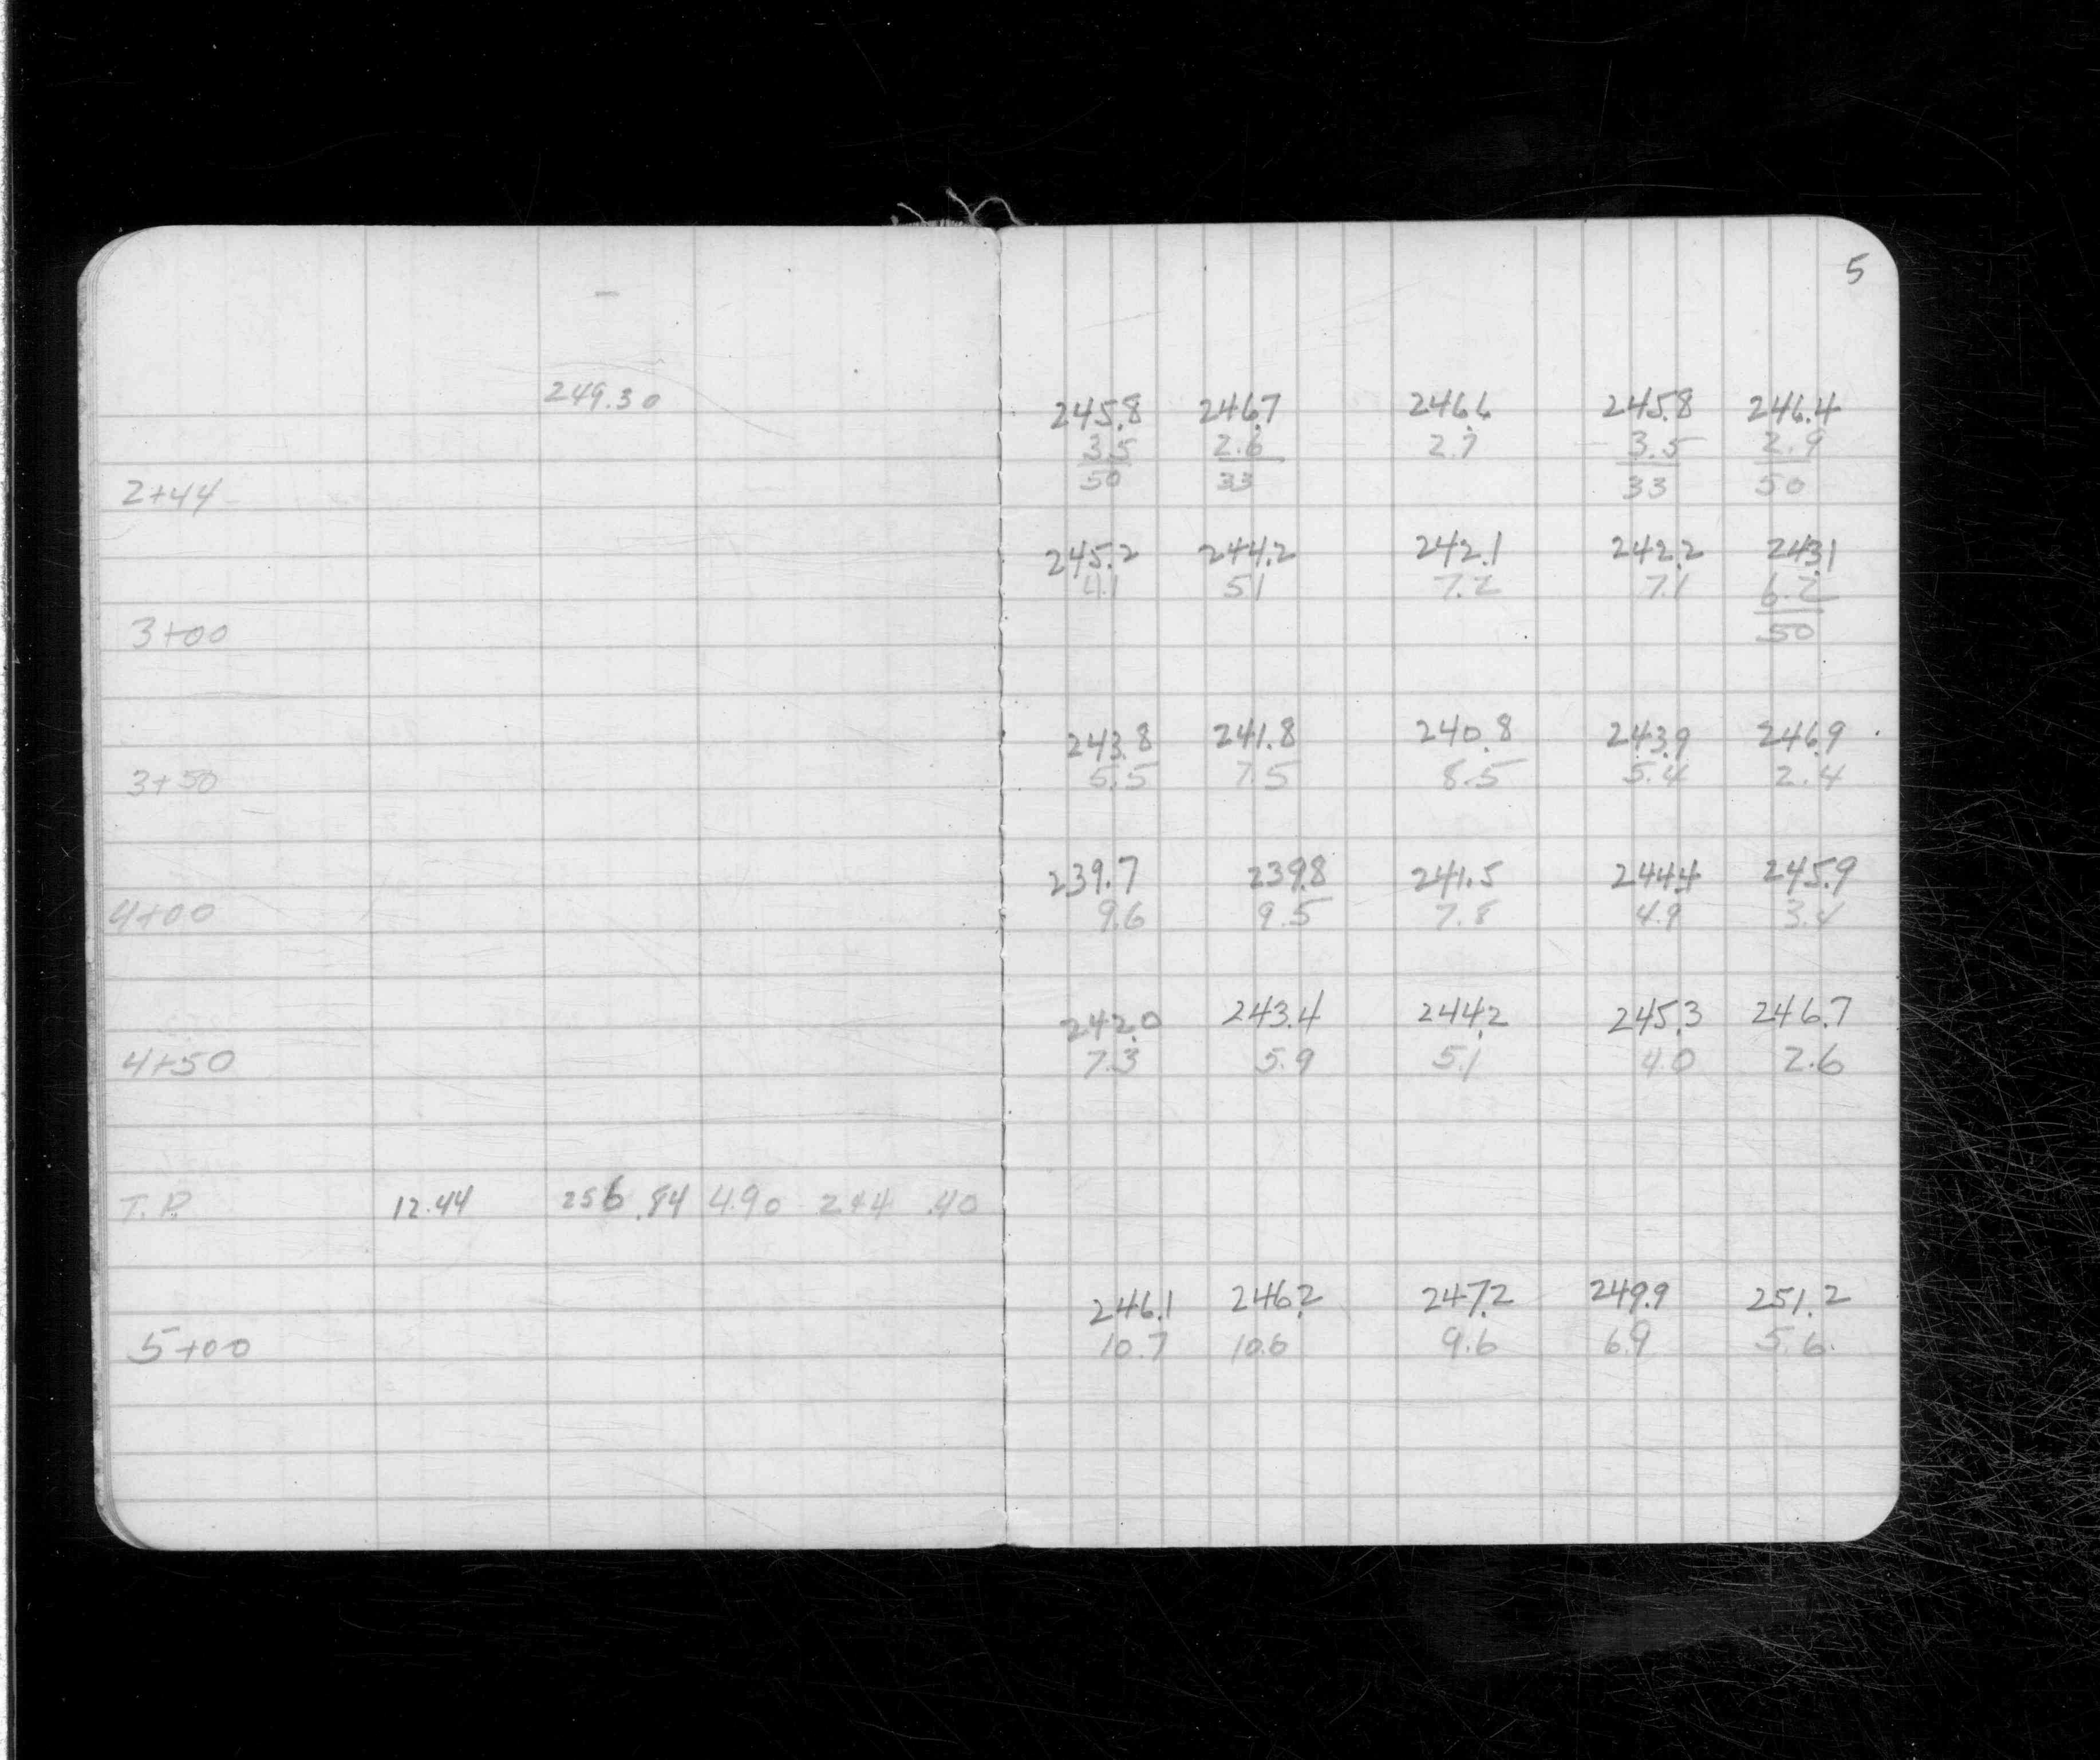 5
249.30 245.8 246.7 246.6 245.8 246.4
3.5 2.6 2.7 3.5 2.9
2+44 50 33 33 50
245.2 244.2 242.1 242.2 243.1
4.1 5.1 7.2 7.1 6.2
3+00 50
243.8 241.8 240.8 243.9 246.9
3+50 5.5 7.5 8.5 5.4 2.4
239.7 239.8 241.5 244.4 245.9
4+00 9.6 9.5 7.8 4.9 3.4
242.0 243.4 244.2 245.3 246.7
4+50 7.3 5.9 5.1 4.0 2.6
T.P. 12.44 256.84 4.90 244.40
246.1 246.2 247.2 249.9 251.2
5+00 10.7 10.6 9.6 6.9 5.6